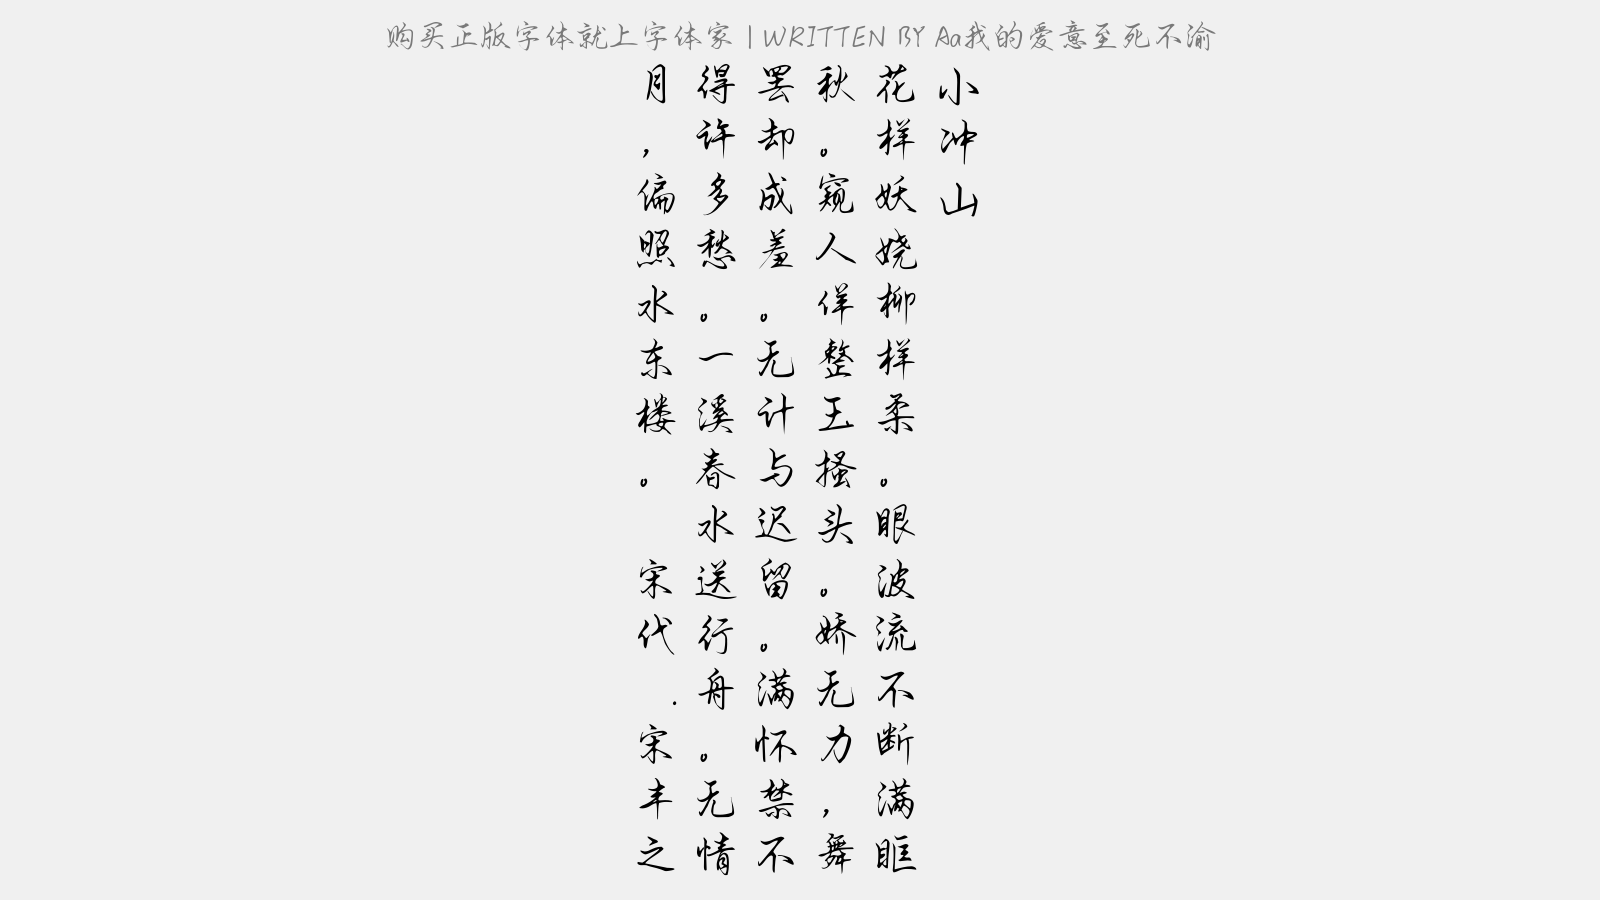 购买正版字体就上字体家 | WRITTEN BY Aa我的爱意至死不渝
小冲山
花样妖娆柳样柔。眼波流不断满眶
秋。窥人佯整王搔头。娇无力，舞
罢却成羞。无计与迟留。满怀禁不
得许多愁。一溪春水送行舟。无情
月，偏照水东楼。 宋代 . 宋丰之